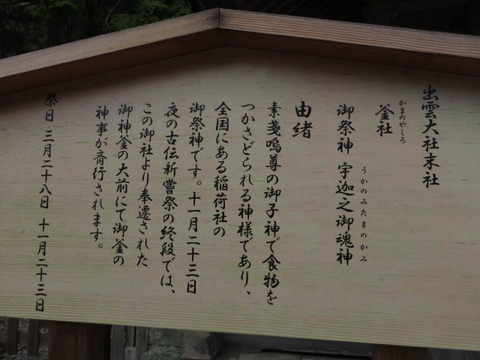 出雲大社末社
釜社
かまのやしろ
御祭神 宇迦之御魂神
うかのみたまのかみ
由緒
素戔嗚尊の御子神で食物を
つかさどられる神様であり、
全国にある稲荷社の
御祭神です。十一月二十三日
夜の古伝新嘗祭の終段では、
この御社より奉遷された
御神釜の大前にて御釜の
神事が斉行されます。
祭日 三月二十八日 十一月二十三日